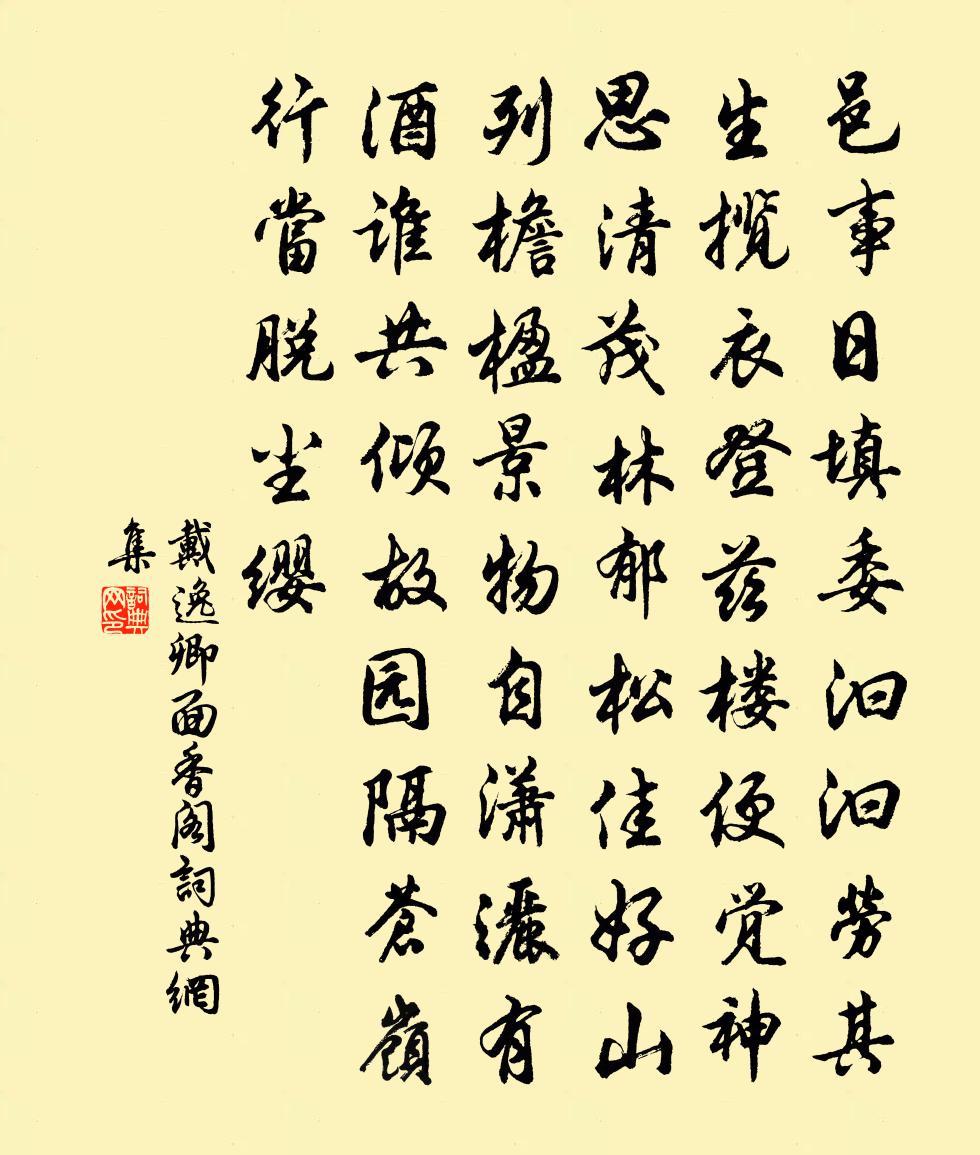 邑事日填委汩汩劳其
生揽衣登兹楼便觉神
思清茂林郁松佳好山
列檐楹景物自潇灑有
酒谁共倾故园隔苍嶺
行當脱尘缨
戴逸卿面香阁詞典網
集
詞典网印